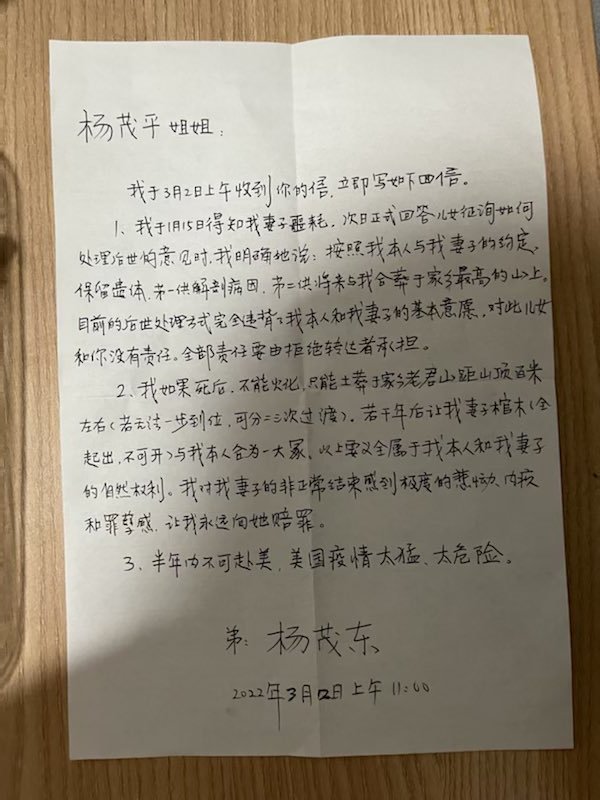 杨茂平姐姐：
我于3月2日上午收到你的信，立即写如下回信。
1、我于1月15日得知我妻子噩耗，次日正式回答儿女征询如何
处理后世的意见时，我明确地说：按照我本人与我妻子的约定，
保留遗体，第一供解剖病因，第二供将来与我合葬于家乡最高的山上。
目前的后世处理方式完全违背了我本人和我妻子的基本意愿，对此儿女
和你没有责任。全部责任要由拒绝转达者承担。
2、我如果死后，不能火化，只能土葬于家乡老君山距山顶百米
左右（若无法一步到位，可分二三次过渡）。若干年后让我妻子棺木（全
起出，不可开）与我本人合为一大冢。以上要义全属于我本人和我妻子
的自然权利。我对我妻子的非正常结束感到极度的悲恸、内疚
和罪孽感，让我永远向她赔罪。
3、半年内不可赴美，美国疫情太猛、太危险。
弟：杨茂东
2022年3月2日上午11:00